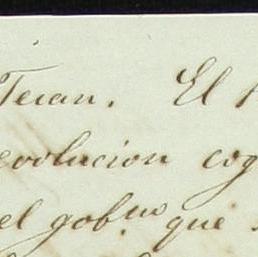 Teran. El
evolucion cog
el gob.no que